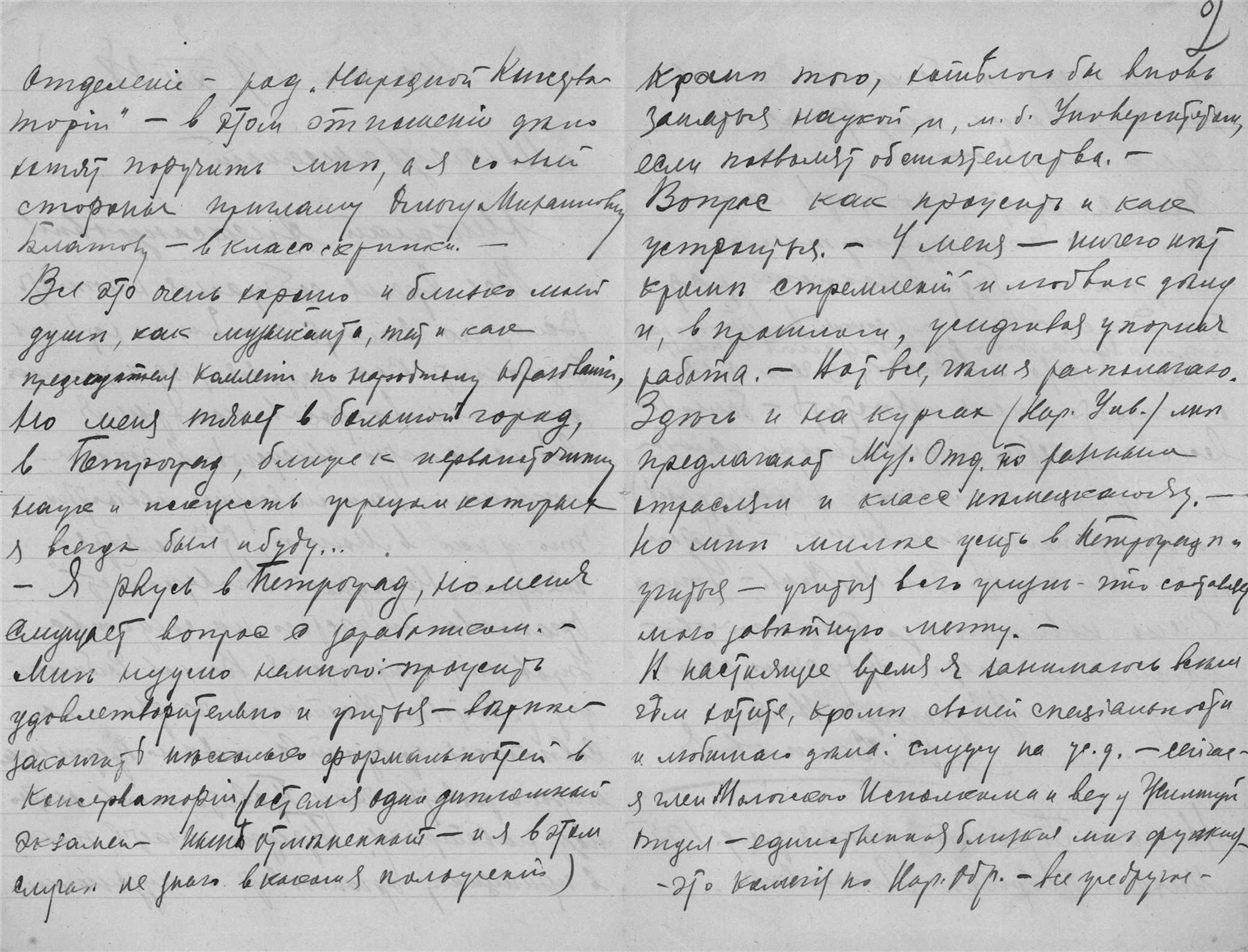 отделенiе – род „Народной Консерва-
торiи" – в этом отношенiи дело
хотят поручить мнѣ, а я со своей
стороны приглашу Ольгу Михаиловну
Блатову – в класс скрипки. –
Все это очень хорошо и близко моей
душѣ, как музыканта, так и как
председателя Коллегiи по народному образованiю,
Но меня тянет в большой город,
в Петроград, ближе к первоисточнику
наук и искусств жрецом которых
я всегда был и буду...
– Я рвусь в Петроград, но меня
смущает вопрос о заработком. –
Мнѣ нужно немного: прожить
удовлетворительно и учиться –
закончить несколько формальностей в
Консерваторiи (остался один дипломный
экзамен – нынѣ отмѣненный – и я в этом
случаѣ не знаю в каком я положенiи)
9
Кромѣ того, хотѣлось бы вновь
заняться наукой и, м. б. Университетом,
если позволят обстоятельства. –
Вопрос как прожить и как
устроиться. – У меня – ничего нѣт
кромѣ стремленiй и любви к дѣлу
и, в прошлом, усидчивая упорная
работа. – Вот все, чѣм я располагаю.
Здѣсь и на курсах (Нар. Унив.) мнѣ
предлагают Муз. Отд. по разным
отраслям и класс нѣмецкого яз. –
Но мнѣ милѣе жить в Петроградѣ и
учиться – учиться всю жизнь – это составляет
мою завѣтную мечту. –
В настоящее время я занимаюсь всѣм
чѣм хотите, кромѣ своей спецiальности
и любимаго дѣла: служу на ж. д. – сейчас
я член Мологского Исполкома и веду Жилищный
отдел – единственная близкая мнѣ функция
– это Коллегiя по Нар. Обр. – все же другое –